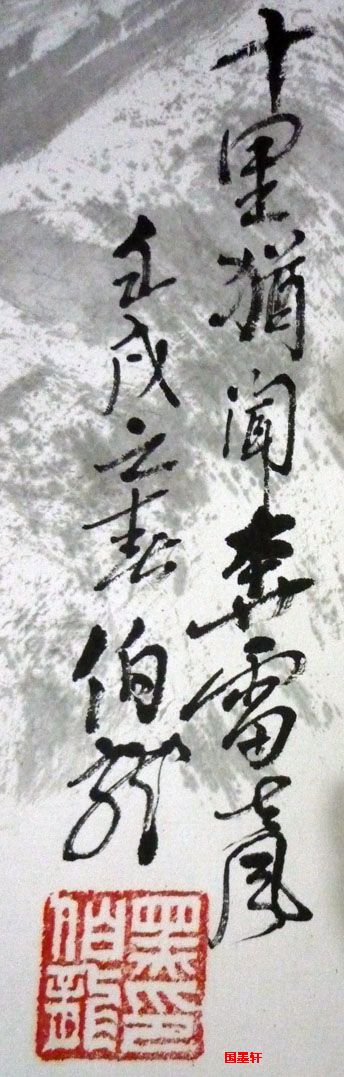 十里猶闻奔雷声
壬戌之春 伯龍
黑印
伯龍
国墨轩